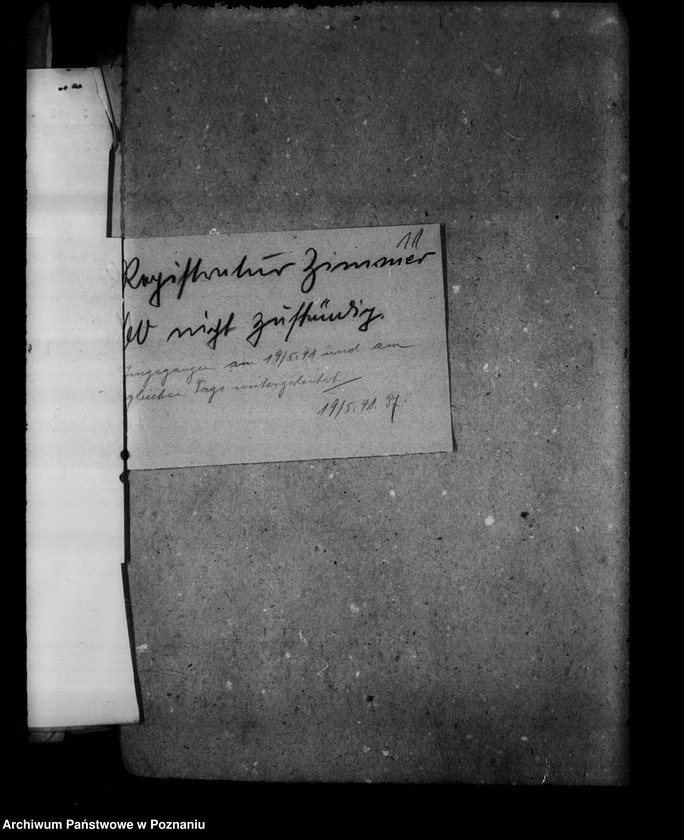 11
Registratur Zimmer
nicht zuständig.
Eingegangen am 19/5.41 und am
gleichen Tage weitergeleitet
19/5.41.
Archiwum Państwowe w Poznaniu